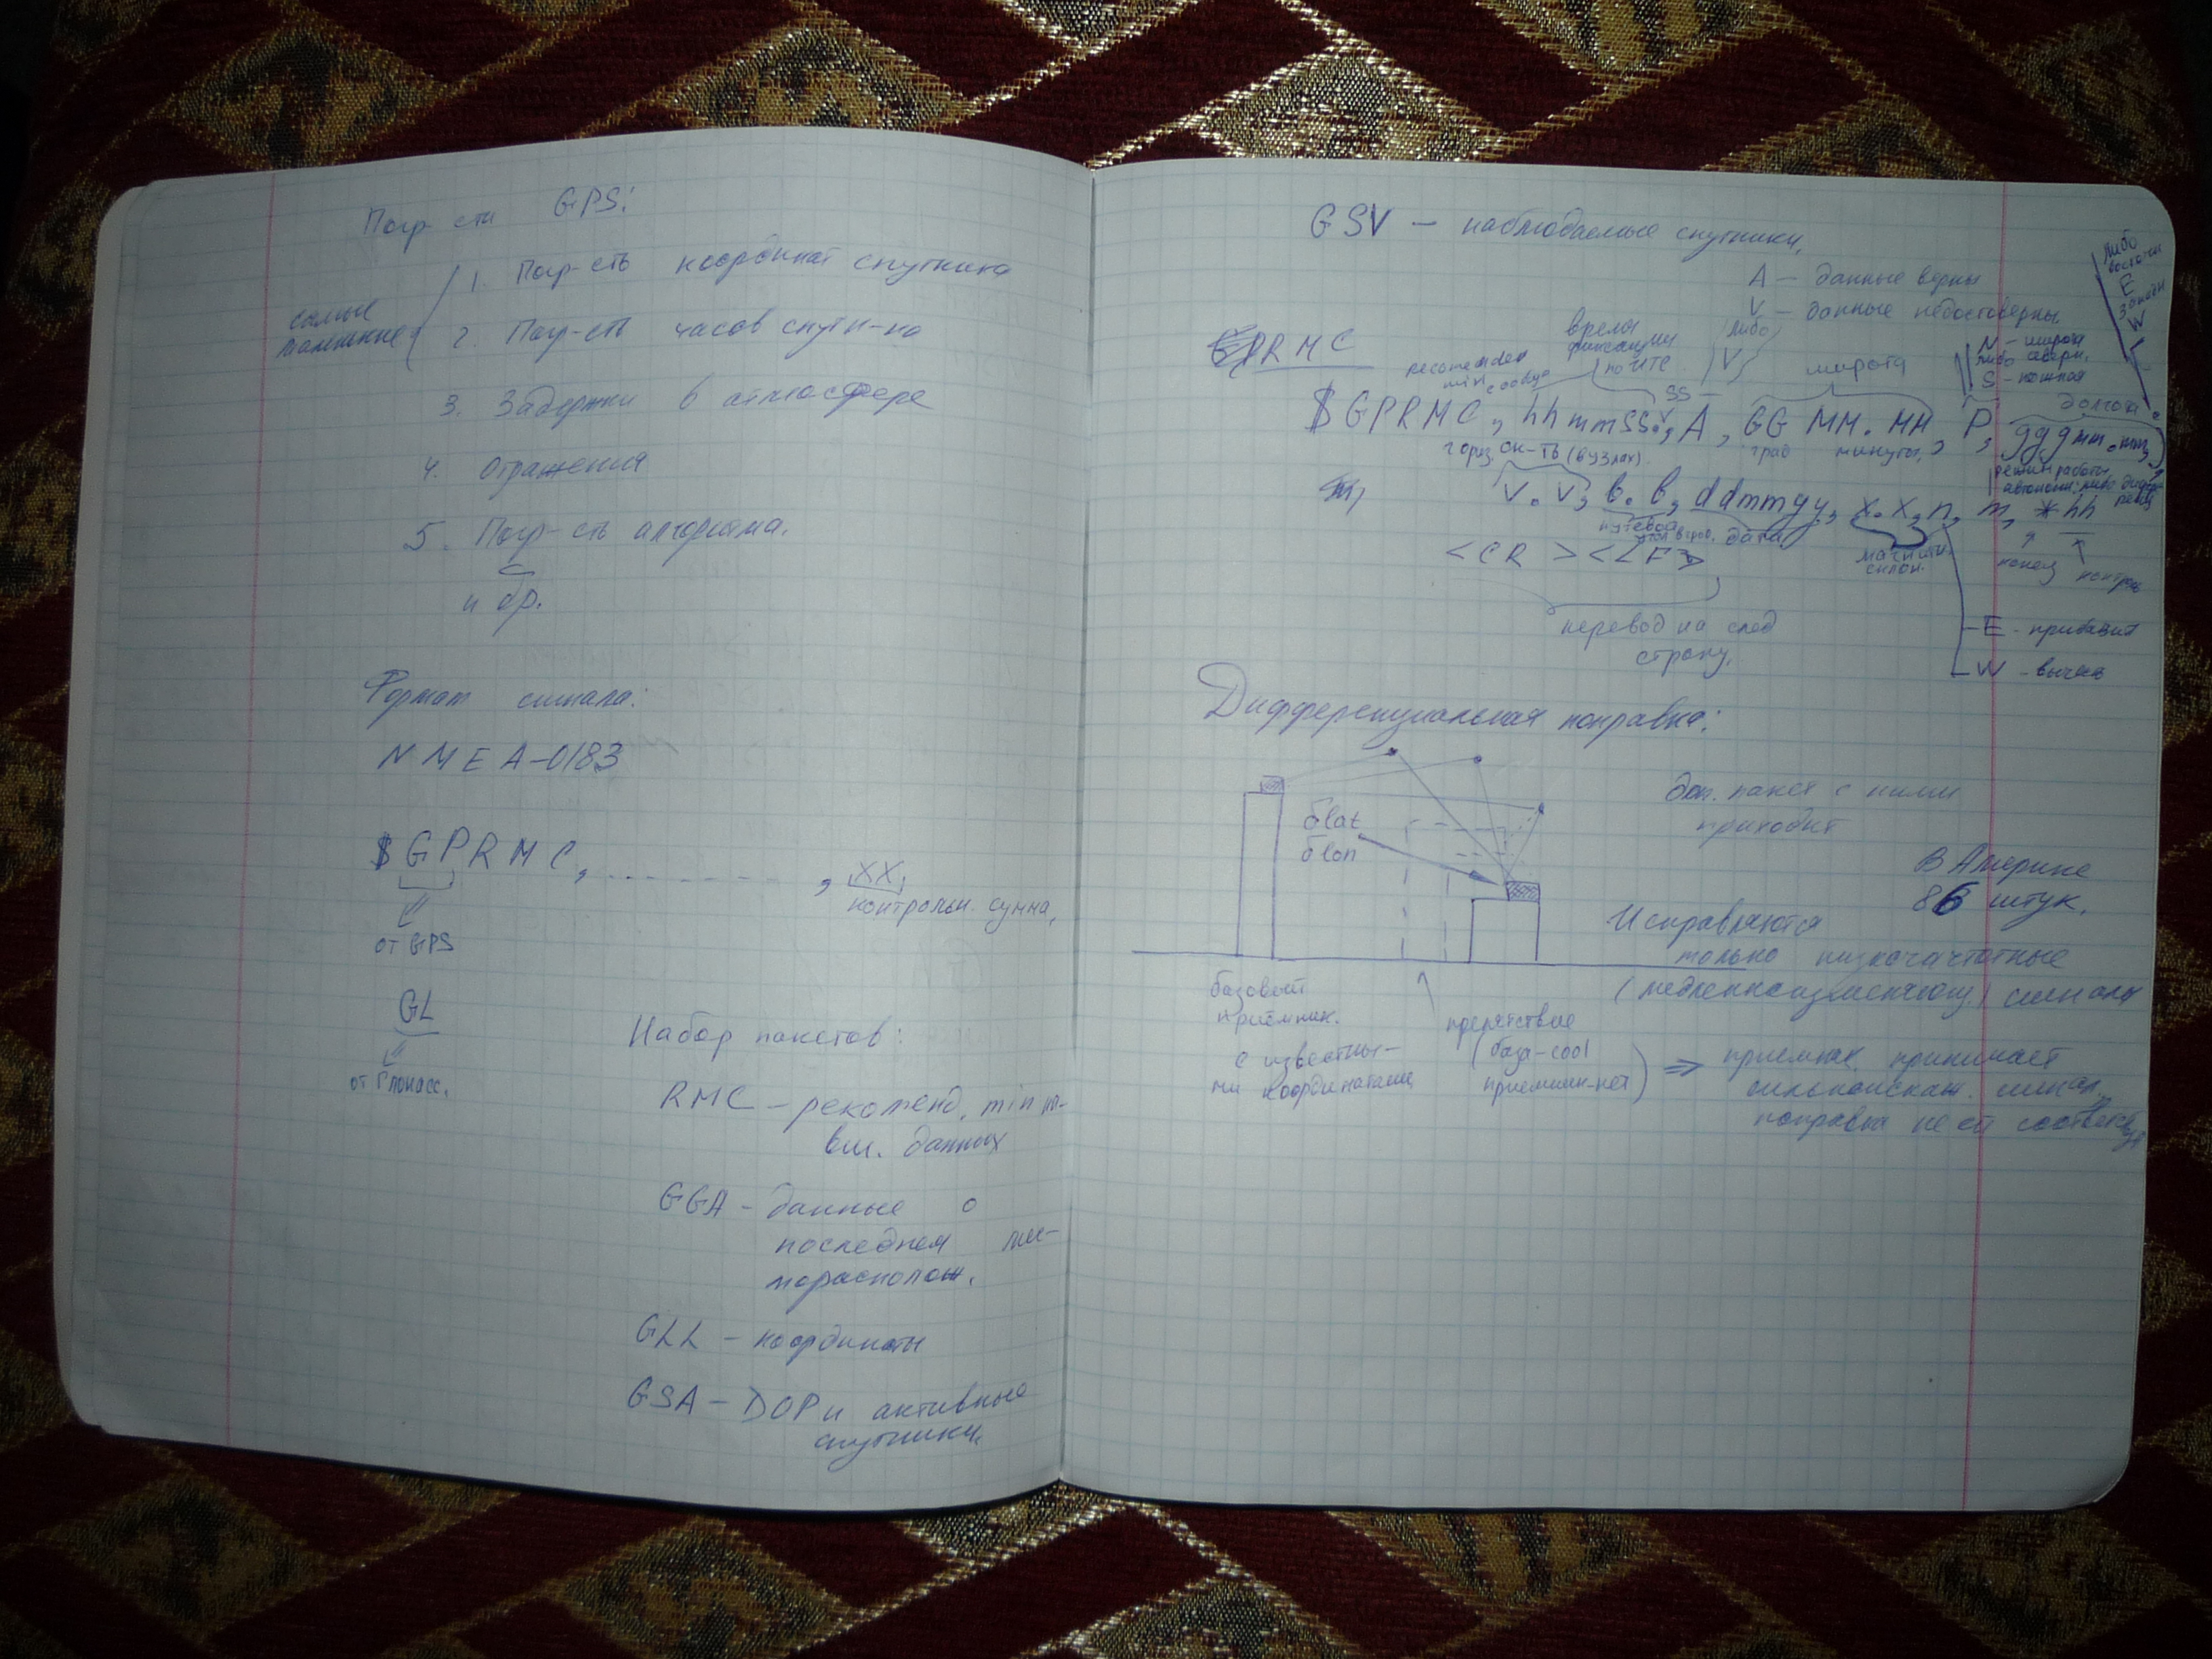 Погр-сти GPS:
самые
маленькие
1. Погр-сть координат спутника
2. Погр-сть часов спутн-ка
3. Задержки в атмосфере
4. Отражения
5. Погр-сть алгоритма.
и др.
Формат сигнала:
NMEA-0183
$GPRMC, - - - - - - - , XX,
контрольн. сумма,
от GPS
GL
от Глонасс.
Набор пакетов:
RMC – рекоменд. min на-
ви. данных
GGA – данные о
последнем ме-
сторасполож.
GLL – координаты
GSA – DOP и активные
спутники.
GSV – наблюдаемые спутники,
A – данные верны
V – данные недостоверны
либо
восточн
E
западн
W
GPRMC
recomended
min
время
фиксации
по UTC
либо
V
широта
N – широта
либо северн.
S – южная
долгота
SS
$GPRMC, hhmmss., A, GG MM.MM, P, gggmm.mm,
гориз. ск-ть (в узлах)
град минуты,
режим работы
автономн. либо дифференц
v.v, b.b, ddmmyy, x.x, n, m, *hh
путевой
дата
магнитн.
склон.
конец
контроль
<CR><LF>
перевод на след
строку.
E - прибавит
W - вычесть
Дифференциальная поправка:
δlat
δlon
доп. пакет с ними
приходит
В Америке
86 штук.
Исправляются
только низкочастотные
(медленноизменяющ) сигналы
базовый
приёмник.
с известны-
ми координатами
препятствие
(база-cool
приемник-нет) ⇒ приемник принимает
сильноискаж. сигнал,
поправка не ей соответствует